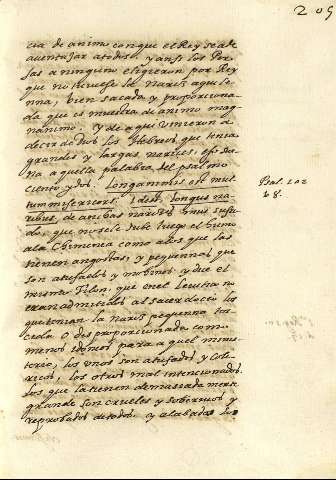 209
cia de animo con que el Rey seade
aventajar atodos, y ansi los Per-
sas a ninguno eligieron por Rey
que no tuviese la nariz aguile
nna, bien sacada y proporciona
da que es muestra de animo mag-
nanimo, y de aqui vinieron a
decir de Dios los Hebreos que tenia
grandes y largas narices,
a aquella palabra del psalmo
ciento y dos. Longanimis et mul
tum misericors. idest, longus na-
ribus, de anchas narices
do, que nosele sube luego el humo
ala Chimenea como alos que las
tienen angostas, y pequennas que
son atufados y mohinos y dice el
mismo Filon, que en el no
eran admitidos al sacerdocio los
que tenian la nariz pequenna tor-
cida, o desproporcionada como
menos idoneos para aquel minis-
terio, los unos son atufados, y cole-
ricos, los otros mal intencionados
los que la tienen demasiadamente
grande son crueles y sobervios y
reprobados de todos, y alabados los
Psal. 102
8.